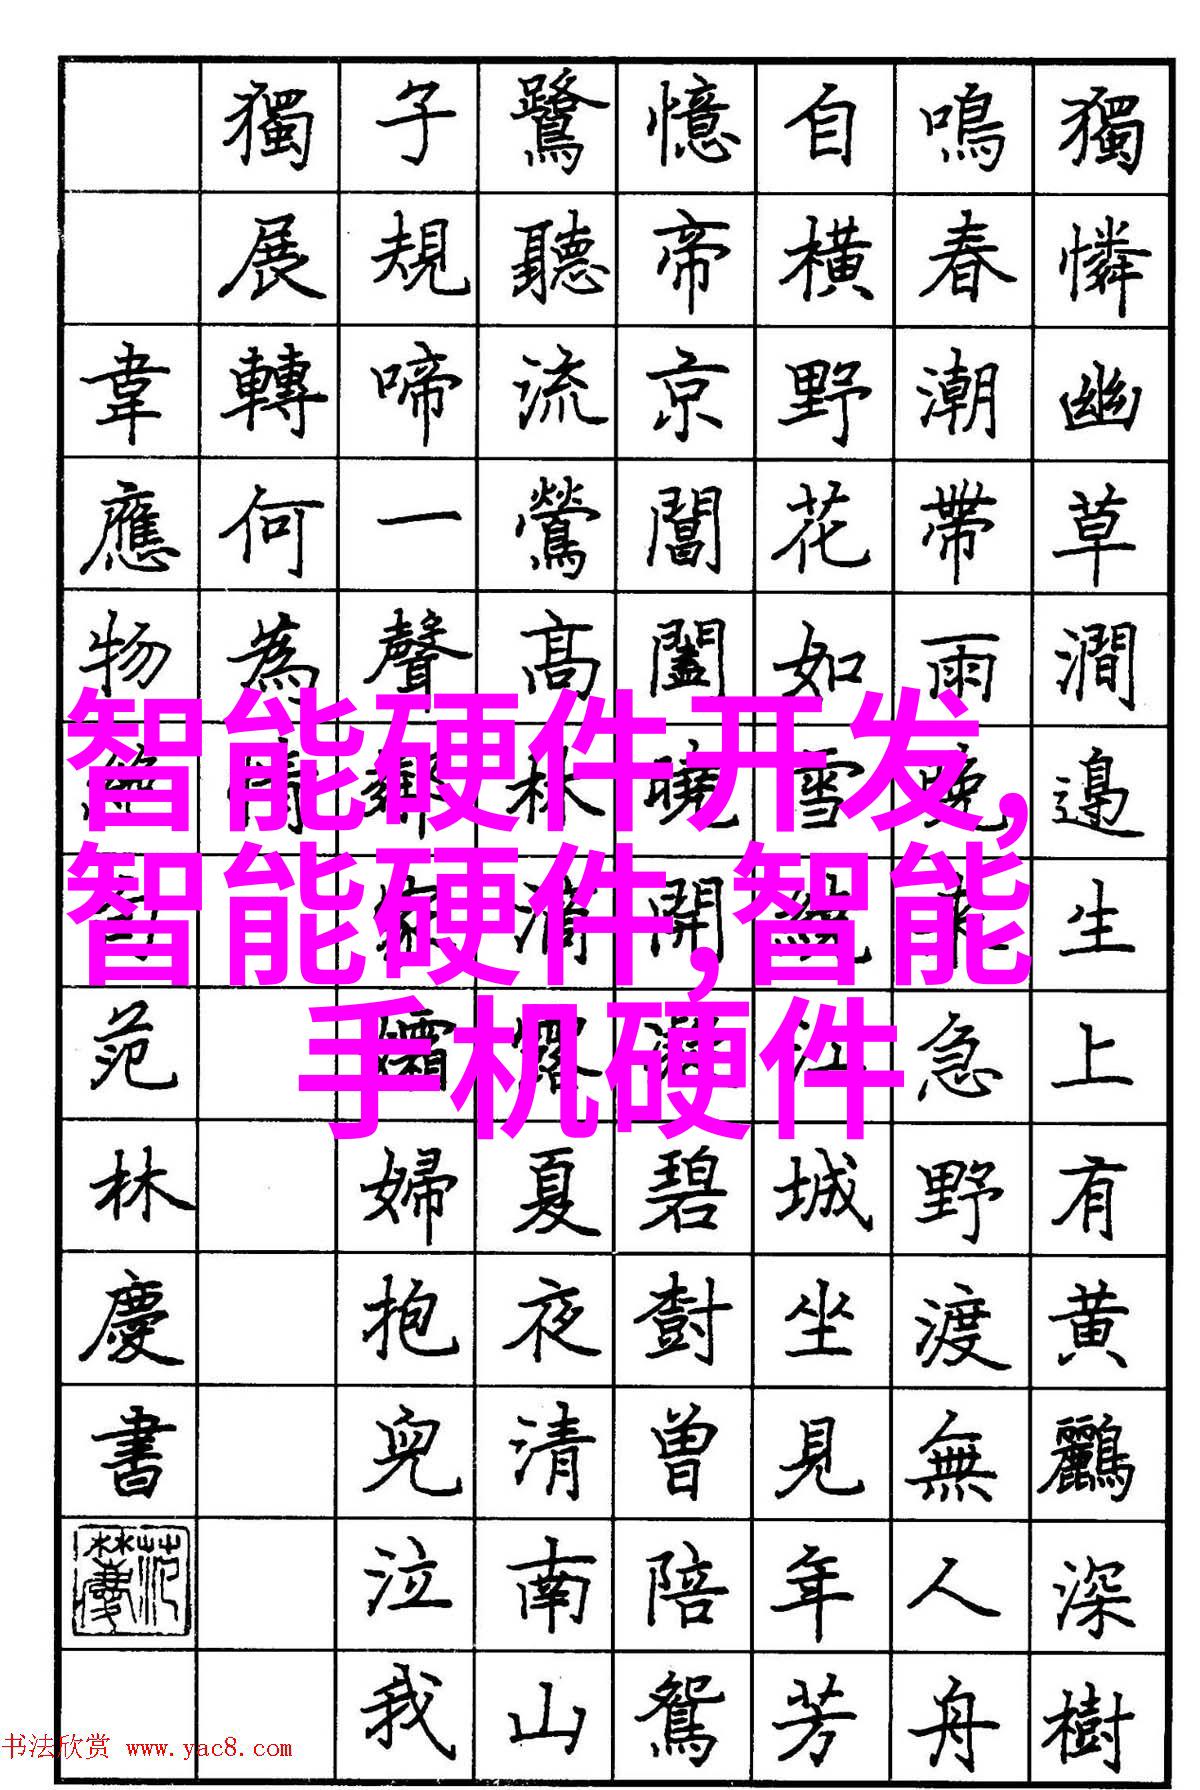 獨憐幽草澗邊生上有黄鸝深樹
鳴春潮帶雨晚來急野渡無人舟
自橫野花如雪繞江城坐見年芳
憶帝京閶闔曉開凝碧樹曾陪鴛
鷺聽流鶯高林滴露夏夜清南山
子規啼一聲鄰家孀婦抱兒泣我
獨展轉何為情
韋應物絕句范林慶書
智能硬件开发,
智能硬件,智能
手机硬件
书法欣赏 www.yac8.com